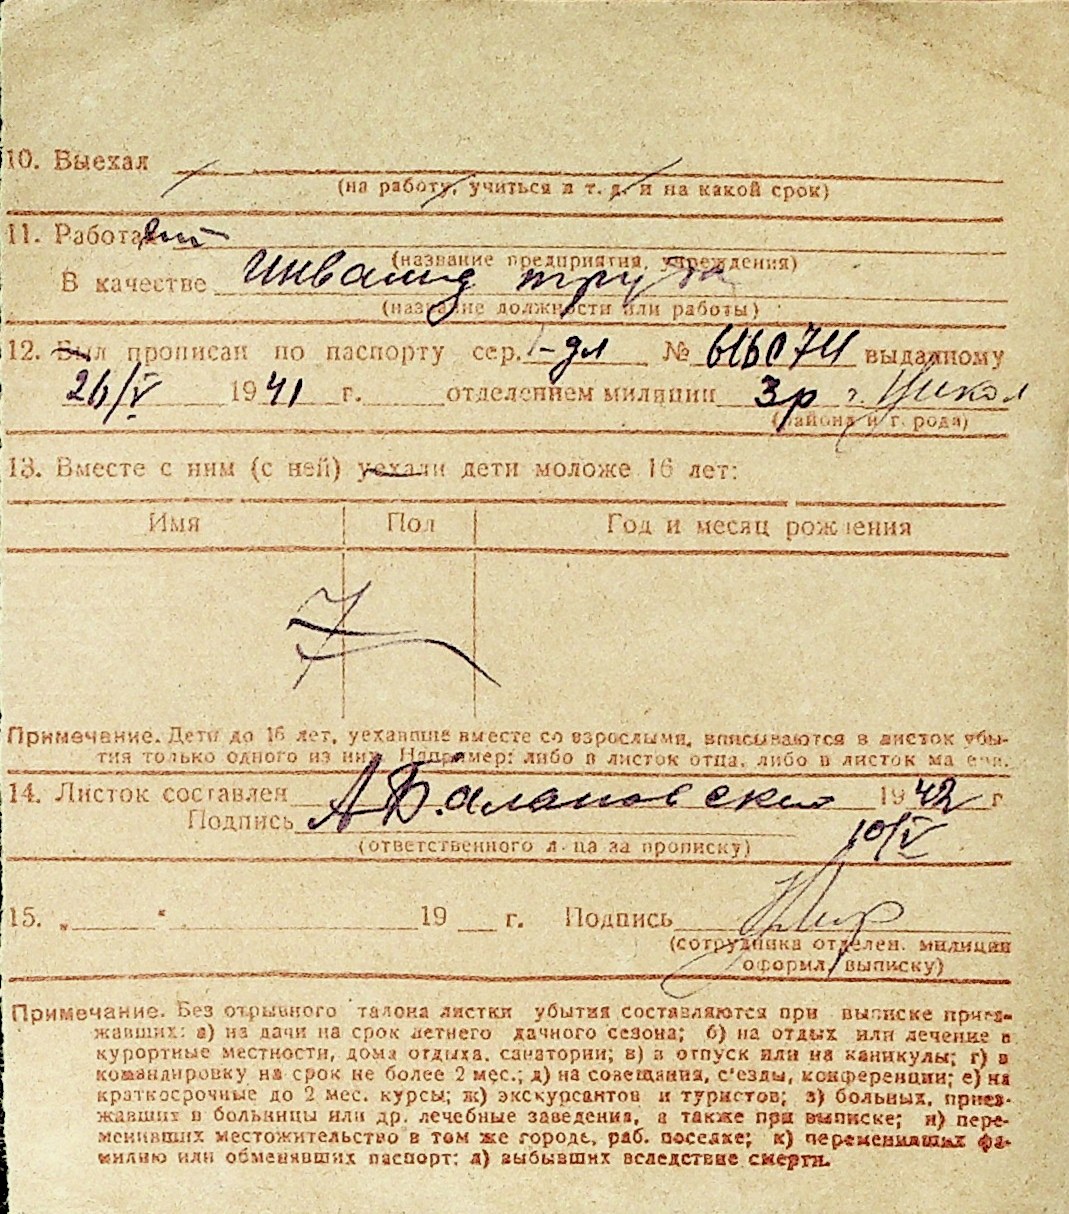 10. Выехал
(на работу, учиться и т. д. и на какой срок)
11. Работа
(название предприятия, учреждения)
В качестве инвалид труда
(название должности или работы)
12. Был прописан по паспорту сер. № выданному
26/V 1941 г. отделением милиции 3 р г. Никол
(района и города)
13. Вместе с ним (с ней) уехали дети моложе 16 лет:
Имя Пол Год и месяц рождения
Z
Примечание. Дети до 16 лет, уехавшие вместе со взрослыми, вписываются в листок убы-
тия только одного из них. Например: либо в листок отца, либо в листок матери.
14. Листок составлен 1942 г
Подпись А Балановский 10/V
(ответственного лица за прописку)
15. „ “ 19 г. Подпись
(сотрудника отделен. милиции
оформил. выписку)
Примечание. Без отрывного талона листки убытия составляются при выписке приез-
жавших: а) на дачи на срок летнего дачного сезона; б) на отдых или лечение в
курортные местности, дома отдыха, санатории; в) в отпуск или на каникулы; г) в
командировку на срок не более 2 мес.; д) на совещания, с'езды, конференции; е) на
краткосрочные до 2 мес. курсы; ж) экскурсантов и туристов; з) больных, приез-
жавших в больницы или др. лечебные заведения, а также при выписке; и) пере-
менивших местожительство в том же городе, раб. поселке; к) переменивших фа-
милию или обменявших паспорт; л) выбывших вследствие смерти.